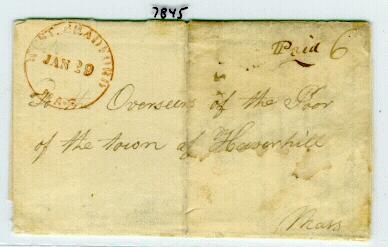 7845
WEST. BRADFORD
JAN 29
MS.
Paid 6
For the Overseers of the Poor
of the town of Haverhill
Mass